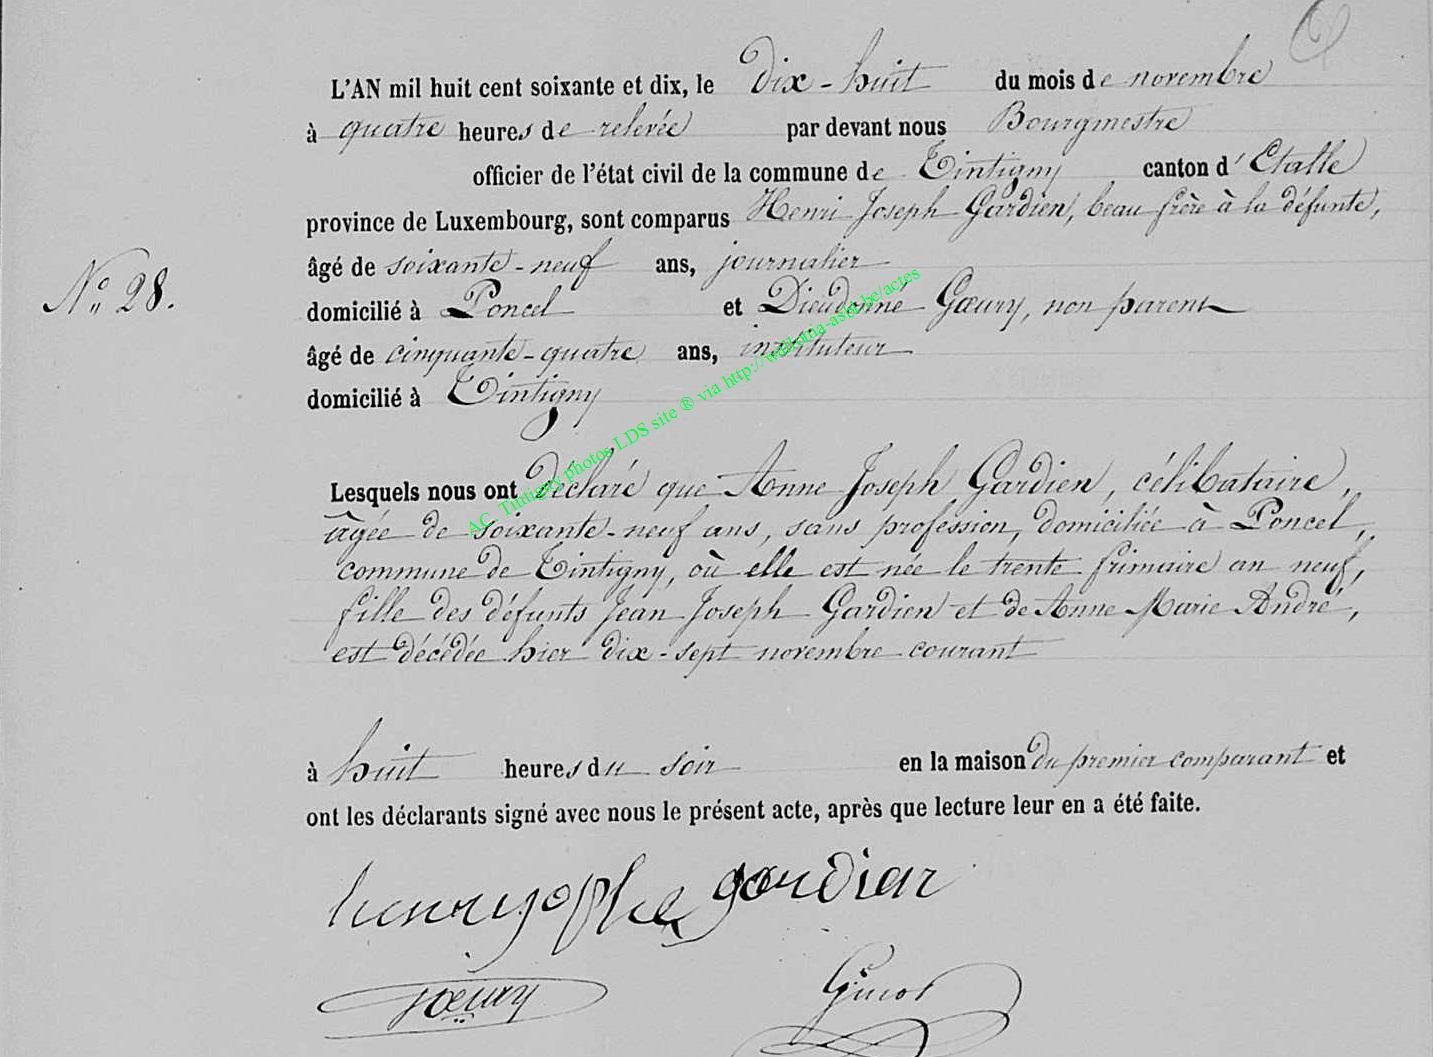 L'AN mil huit cent soixante et dix, le Dix-huit du mois de novembre
à quatre heures de relevée par devant nous Bourgmestre
officier de l'état civil de la commune de Tintigny canton d'Etalle
province de Luxembourg, sont comparus Henri Joseph Gardien, beau frère à la défunte,
âgé de soixante-neuf ans, journalier
N° 28.
domicilié à Poncel et Dieudonné Gœury, non parent
âgé de cinquante-quatre ans, instituteur
domicilié à Tintigny
AC. Tintigny photos LDS site ® via http://wallonia-asbl.be/actes
Lesquels nous ont Déclaré que Anne Joseph Gardien, célibataire,
âgée de soixante-neuf ans, sans profession, domiciliée à Poncel,
commune de Tintigny, où elle est née le trente frimaire an neuf,
fille des défunts Jean Joseph Gardien et de Anne Marie André,
est décédée hier dix-sept novembre courant
à huit heures du soir en la maison du premier comparant et
ont les déclarants signé avec nous le présent acte, après que lecture leur en a été faite.
Gœury